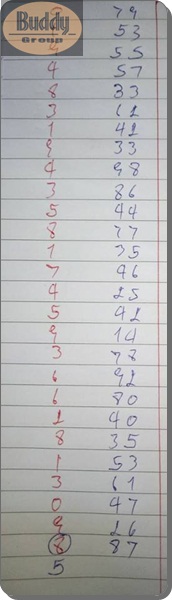 Buddy
Group
79
53
55
4 57
8 33
3 61
1 41
9 33
4 98
3 86
5 44
8 77
1 35
7 46
4 25
5 42
9 14
3 78
6 92
6 80
1 40
8 35
1 53
3 61
0 47
9 26
8 87
5